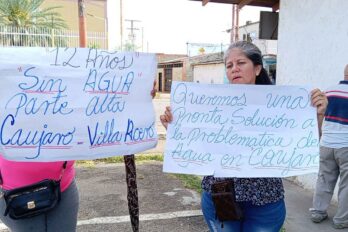 12 Años
"Sin AGUA"
Parte alta
Caujaro - Villa Rocío
Queremos una
Pronta Solución a
la problematica del
Agua en Caujaro